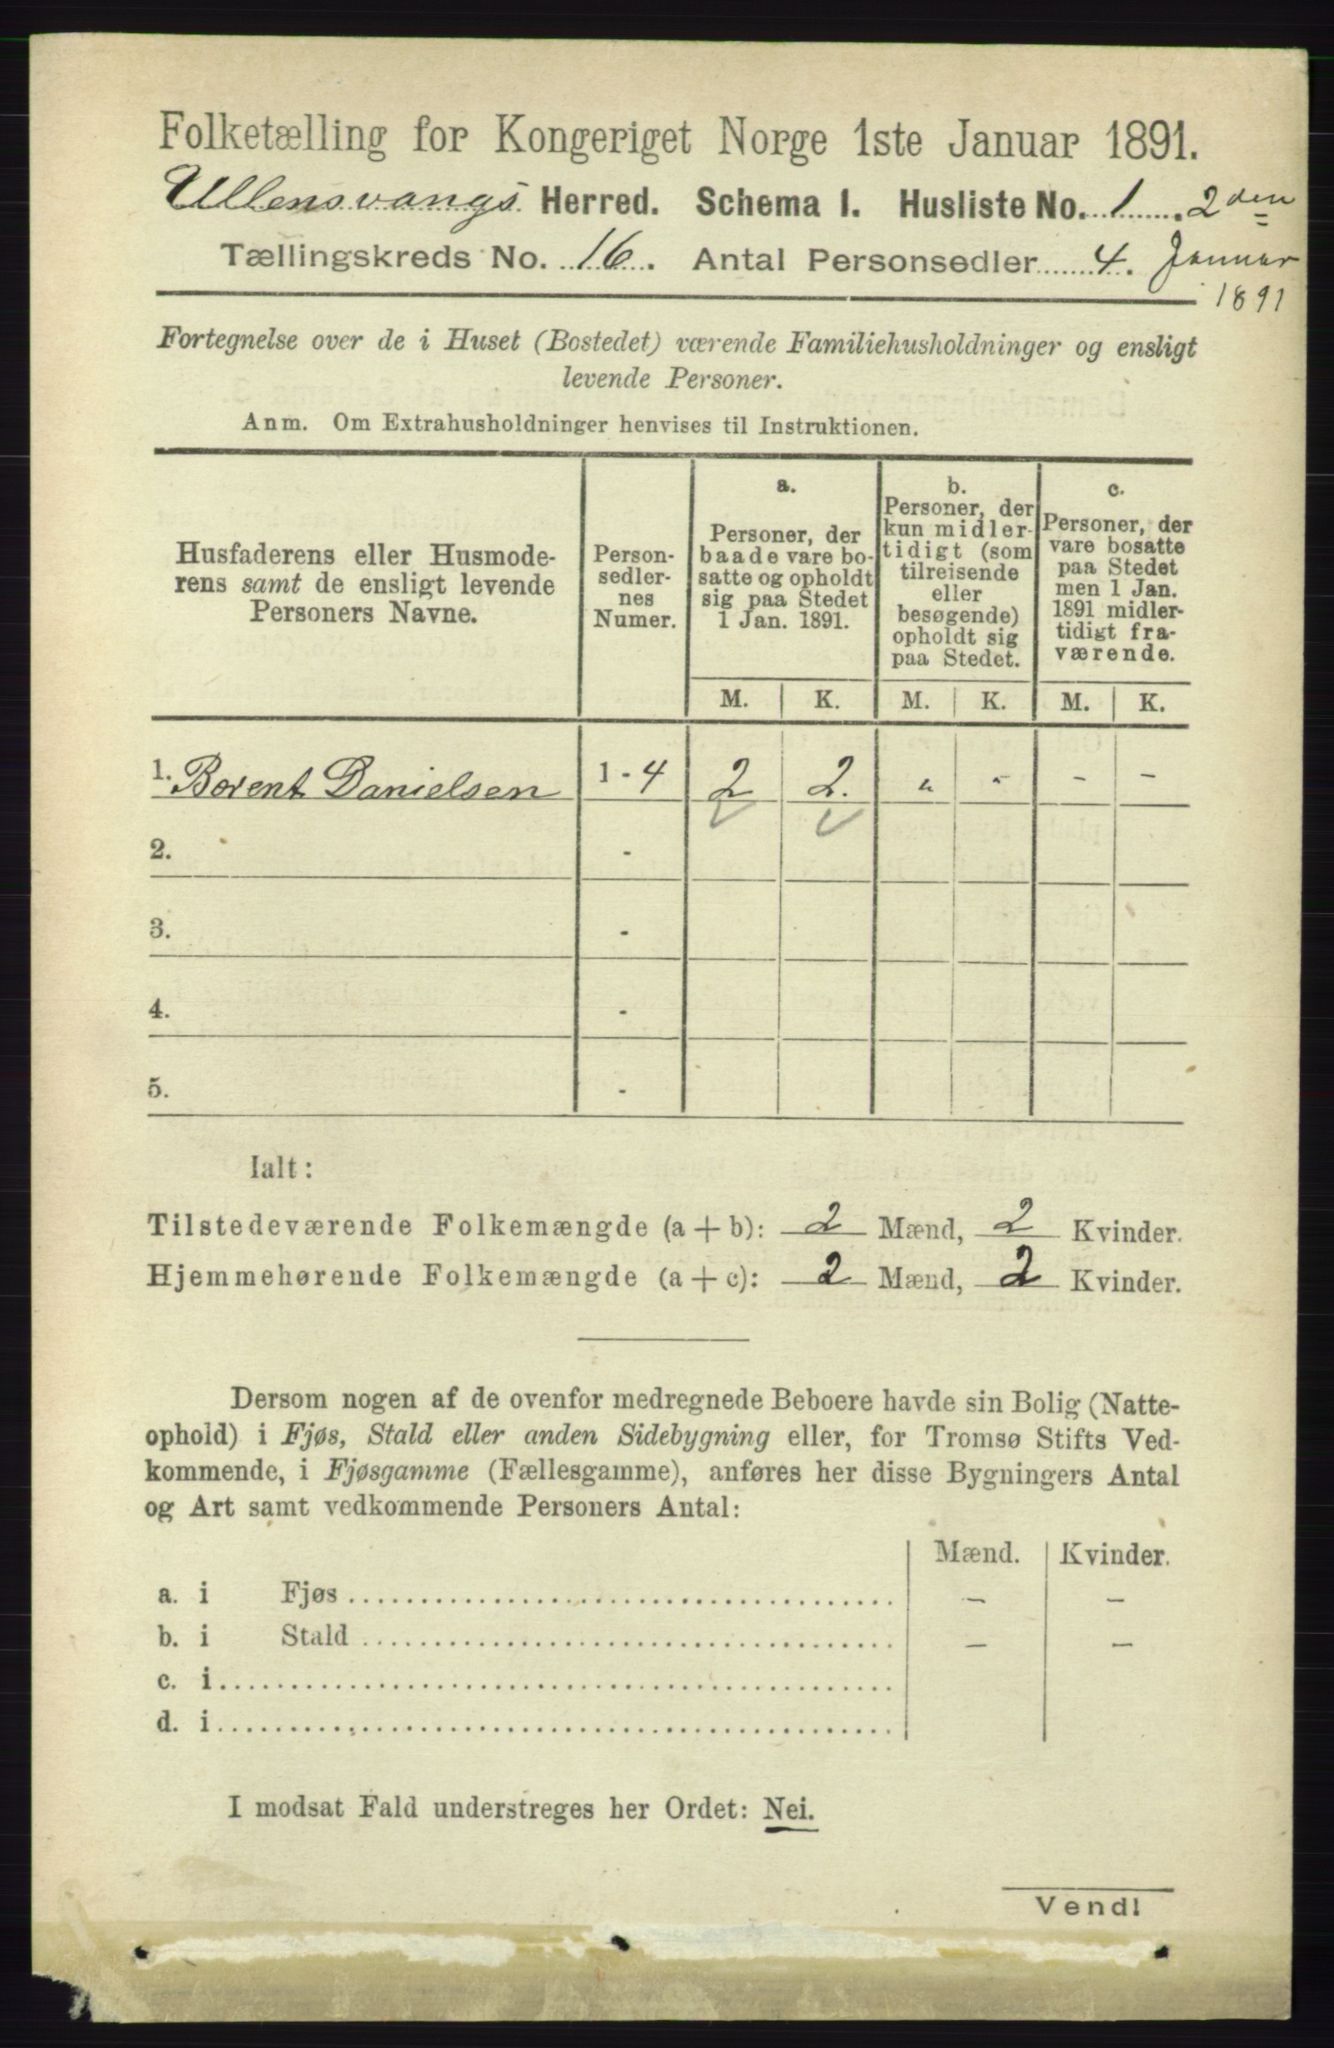 Folketælling for Kongeriget Norge 1ste Januar 1891.
Ullensvangs Herred. Schema 1. Husliste No. 1. 2den
Tællingskreds No. 16. Antal Personsedler 4. Januar
1891
Fortegnelse over de i Huset (Bostedet) værende Familiehusholdninger og ensligt
levende Personer.
Anm. Om Extrahusholdninger henvises til Instruktionen.
Husfaderens eller Husmode-
rens samt de ensligt levende
Personers Navne.
Person-
sedler-
nes
Numer.
a.
Personer, der
baade vare bo-
satte og opholdt
sig paa Stedet
1 Jan. 1891.
b.
Personer, der
kun midler-
tidigt (som
tilreisende
eller
besøgende)
opholdt sig
paa Stedet.
c.
Personer, der
vare bosatte
paa Stedet
men 1 Jan.
1891 midler-
tidigt fra-
værende.
M. K. M. K. M. K.
1. Berent Danielsen 1 - 4 2 2. " - - -
2. -
3. -
4. -
5. -
Ialt:
Tilstedeværende Folkemængde (a + b): 2 Mænd, 2 Kvinder.
Hjemmehørende Folkemængde (a + c): 2 Mænd, 2 Kvinder.
Dersom nogen af de ovenfor medregnede Beboere havde sin Bolig (Natte-
ophold) i Fjøs, Stald eller anden Sidebygning eller, for Tromsø Stifts Ved-
kommende, i Fjøsgamme (Fællesgamme), anføres her disse Bygningers Antal
og Art samt vedkommende Personers Antal:
Mænd. Kvinder.
a. i Fjøs ........ – –
b. i Stald ........ – –
c. i ........
d. i ........
I modsat Fald understreges her Ordet: Nei.
Vend!